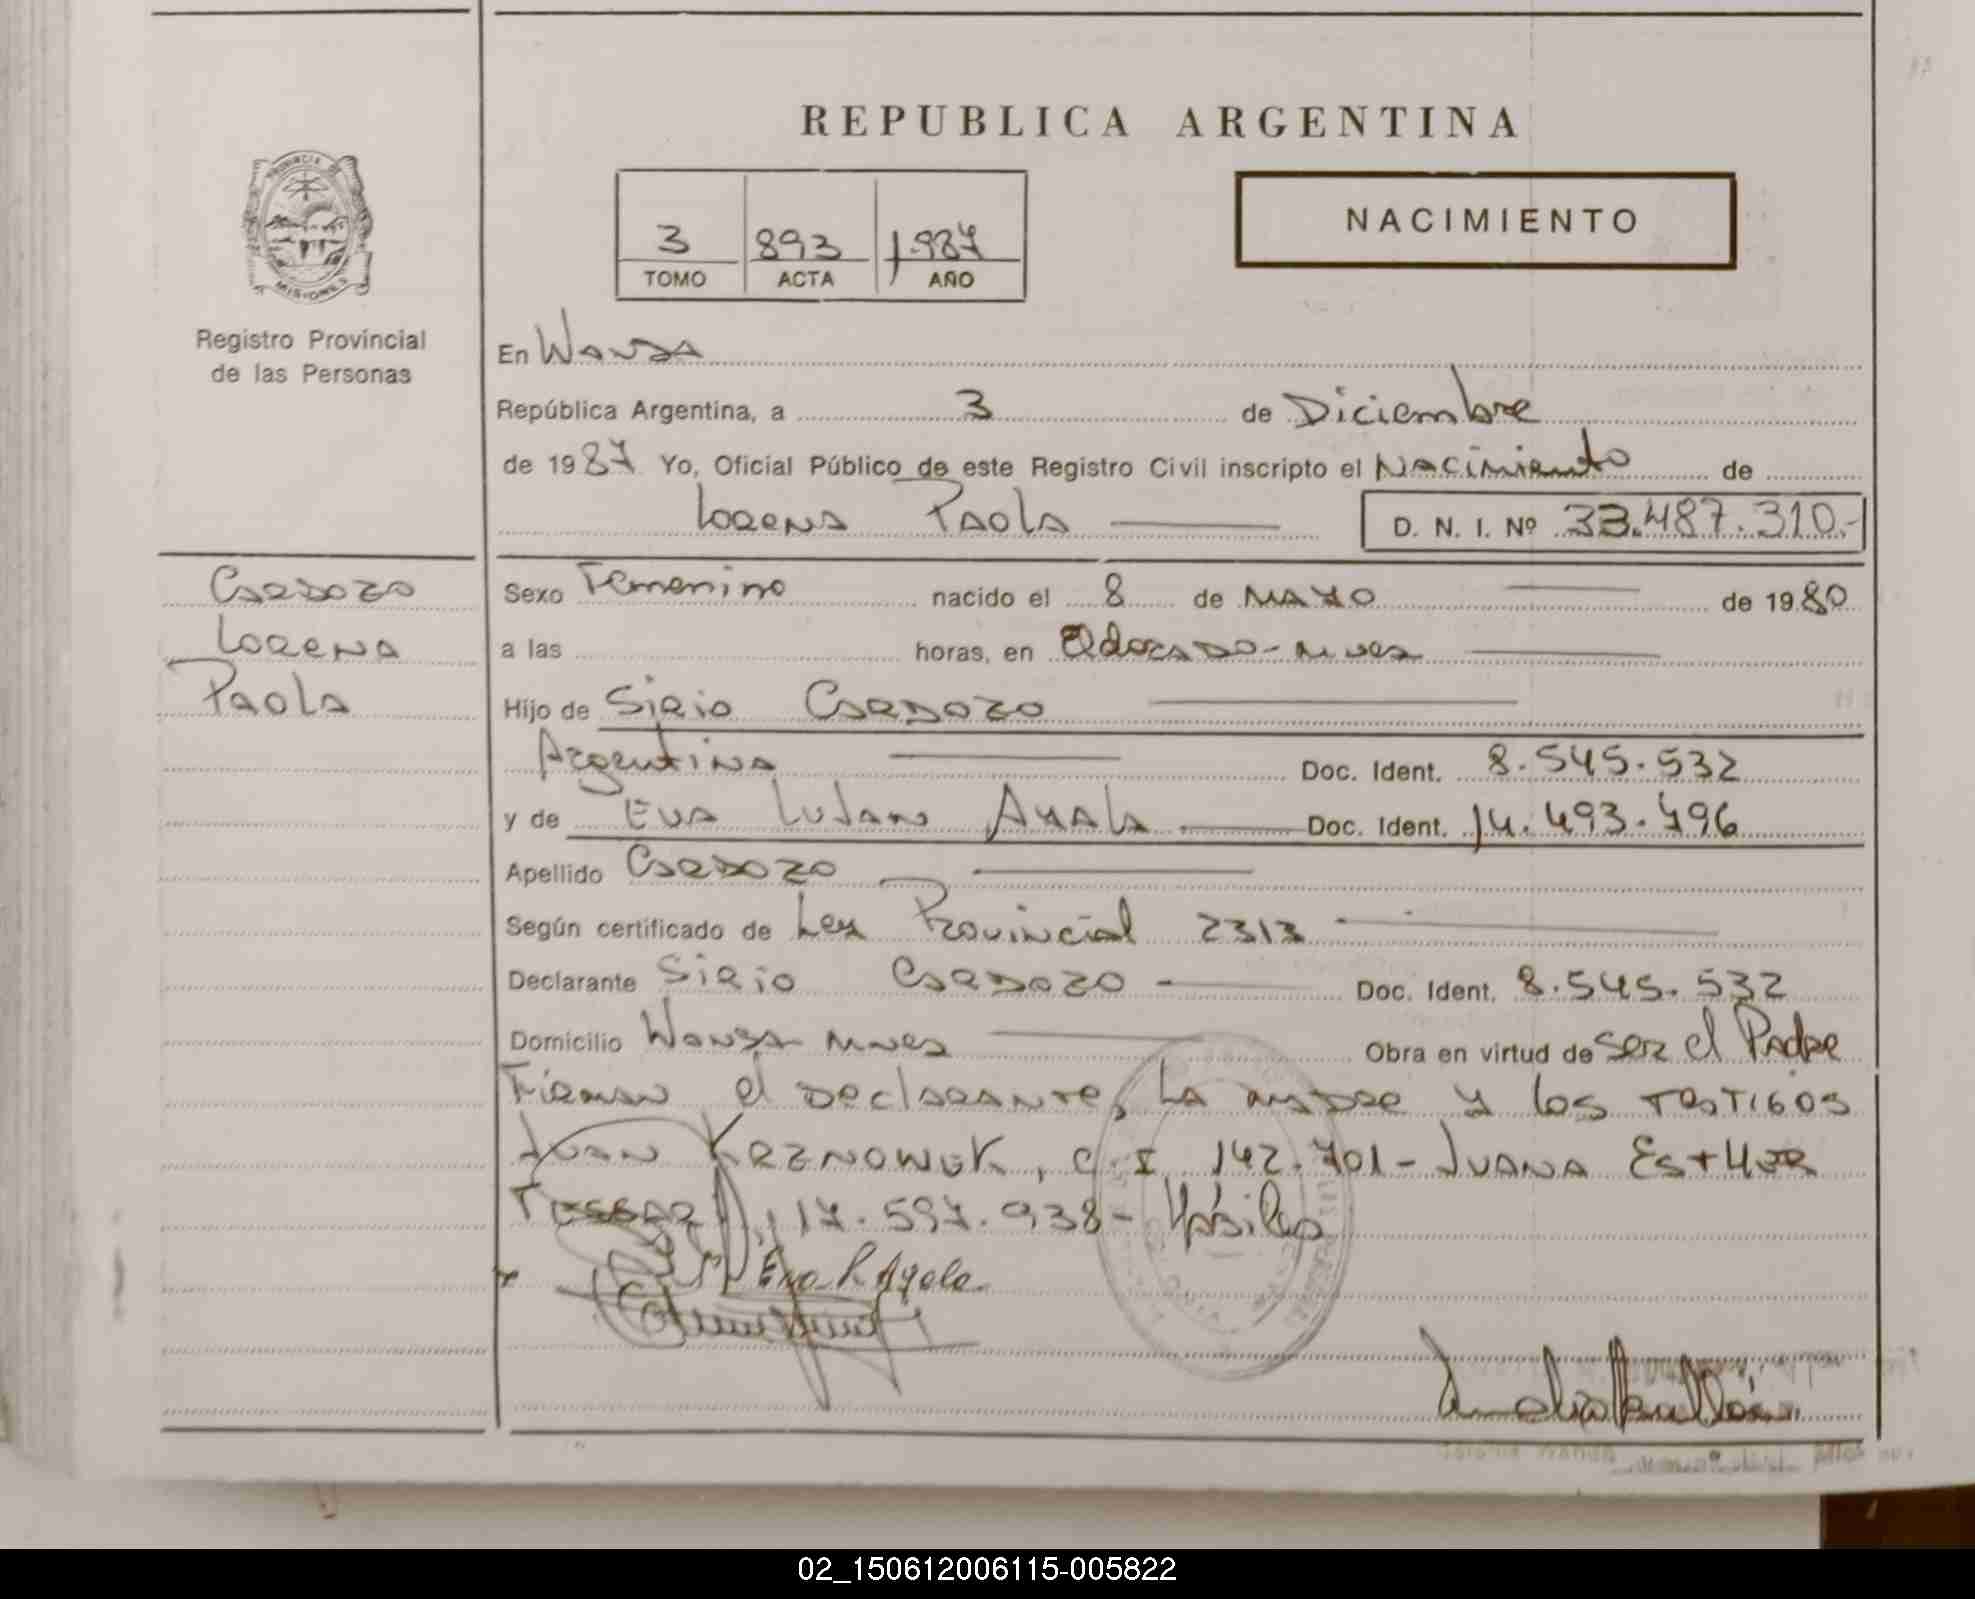 REPUBLICA ARGENTINA
PROVINCIA DE
MISIONES
Registro Provincial
de las Personas
3 893 1.987
TOMO ACTA AÑO
NACIMIENTO
En Wanda
República Argentina, a 3 de Diciembre
de 1987 Yo, Oficial Público de este Registro Civil inscripto el Nacimiento de
Lorena Paola D. N. I. Nº 33.487.310.-
Cardozo
Lorena
Paola
Sexo Femenino nacido el 8 de Mayo de 1980
a las horas, en Eldorado - Mnes
Hijo de Sirio Cardozo
Argentina Doc. Ident. 8.545.532
y de Eva Lujan Ayala Doc. Ident. 14.493.796
Apellido Cardozo
Según certificado de Ley Provincial 2313
Declarante Sirio Cardozo Doc. Ident. 8.545.532
Domicilio Wanda - Mnes Obra en virtud de ser el Padre
Firman el declarante, La madre y los testigos
Juan Krznowek, C.I 142.701 - Juana Esther
17.597.938 -
Eva L Ayala
02_150612006115-005822